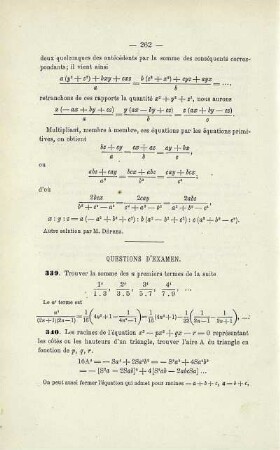 — 262 —
deux quelconques des antécédents par la somme des conséquents corres-
pondants; il vient ainsi
retranchons de ces rapports la quantité x² + y² + z², nous aurons
Multipliant, membre à membre, ces équations par les équations primi-
tives, on obtient
bz + cy / a = cx + az / b = ay + bx / c,
ou
abz + cay / a² = bcx + abz / b² = cay + bcx / c²;
d'où
2bcx / b² + c² − a² = 2cay / c² + a² − b² = 2abz / a² + b² − c²,
x : y : z = a (− a² + b² + c²) : b (a² − b² + c²) : c (a² + b² − c²).
Autre solution par M.
QUESTIONS D'EXAMEN.
339. Trouver la somme des n premiers termes de la suite
1⁴ / 1.3' 2⁴ / 3.5' 3⁴ / 5.7' 4⁴ / 7.9' ...
Le nᵉ terme est
340. Les racines de l'équation x³ − px² + qx − r = 0 représentant
les côtés ou les hauteurs d'un triangle, trouver l'aire A du triangle en
fonction de p, q, r.
16A² = − Sa⁴ + 2Sa²b² = − S²a² + 4Sa²b²
= − [S²a − 2Sab]² + 4[S²ab − 2abcSa] ...
On peut aussi former l'équation qui admet pour racines − a + b + c, a − b + c,